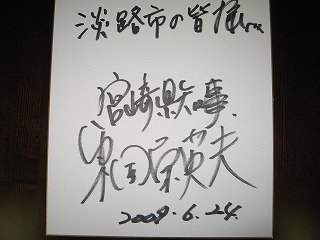 淡路市の皆様へ
宮崎県知事
東国原英夫
2009.6.24.